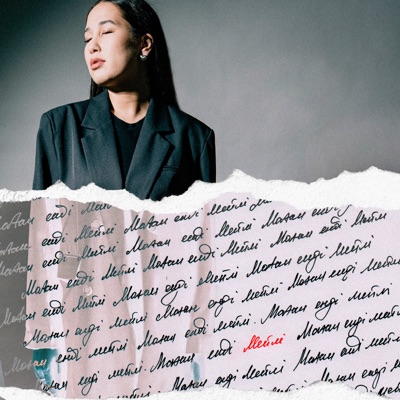 Маған енді Мейлі Маған енді Мейлі
Маған енді Мейлі Маған енді Мейлі Маған енді
Маған енді Мейлі Маған енді Мейлі Маған енді Мейлі
Маған енді Мейлі Маған енді Мейлі Маған енді Мейлі
Маған енді Мейлі Маған енді Мейлі Маған енді Мейлі
Маған енді мейлі Маған енді Мейлі Маған енді мейлі
енді мейлі Маған енді Мейлі Маған енді мейлі
Маған енді мейлі Маған енді мейлі